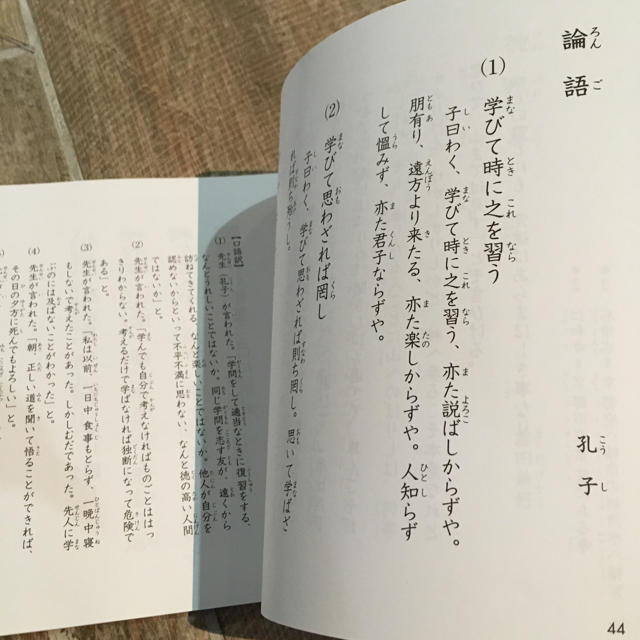 論語
孔子
(1) 学びて時に之を習う
子曰わく、学びて時に之を習う、亦た説ばしからずや。
朋有り、遠方より来たる、亦た楽しからずや。人知らず
して慍みず、亦た君子ならずや。
(2) 学びて思わざれば罔し
子曰わく、学びて思わざれば則ち罔し。思いて学ばざ
れば則ち殆うし。
44
【口語訳】
(1) 先生(孔子)が言われた。「学問をして適当なときに復習をする、
なんとうれしいことではないか。同じ学問を志す友が、遠くから
訪ねてきてくれる、なんと楽しいことではないか。他人が自分を
認めないからといって不平不満に思わない、なんと徳の高い人間
ではないか」と。
(2) 先生が言われた。「学んでも自分で考えなければものごとははっ
きりわからない。考えるだけで学ばなければ独断になって危険で
ある」と。
(3) 先生が言われた。「私は以前、一日中食事もとらず、一晩中寝
もしないで考えたことがあった。しかしむだであった。先人に学
ぶのには及ばないことがわかった」と。
(4) 先生が言われた。「朝、正しい道を聞いて悟ることができれば、
その日の夕方に死んでもよろしい」と。